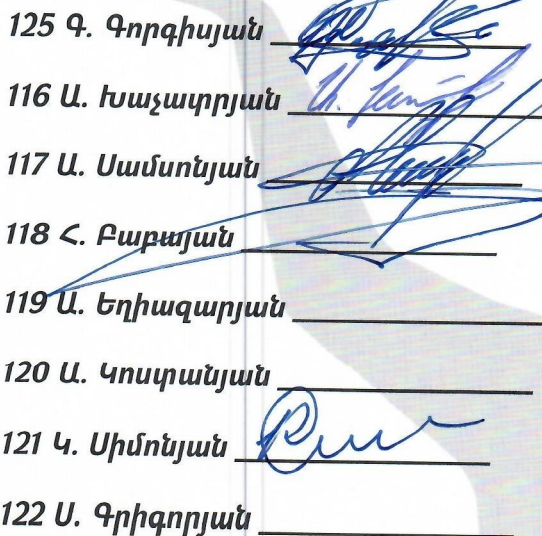 125 Գ. Գորգիսյան
116 Ա. Խաչատրյան
117 Ա. Սամսոնյան
118 Հ. Բաբայան
119 Ա. Եղիազարյան
120 Ա. Կոստանյան
121 Կ. Սիմոնյան
122 Ս. Գրիգորյան